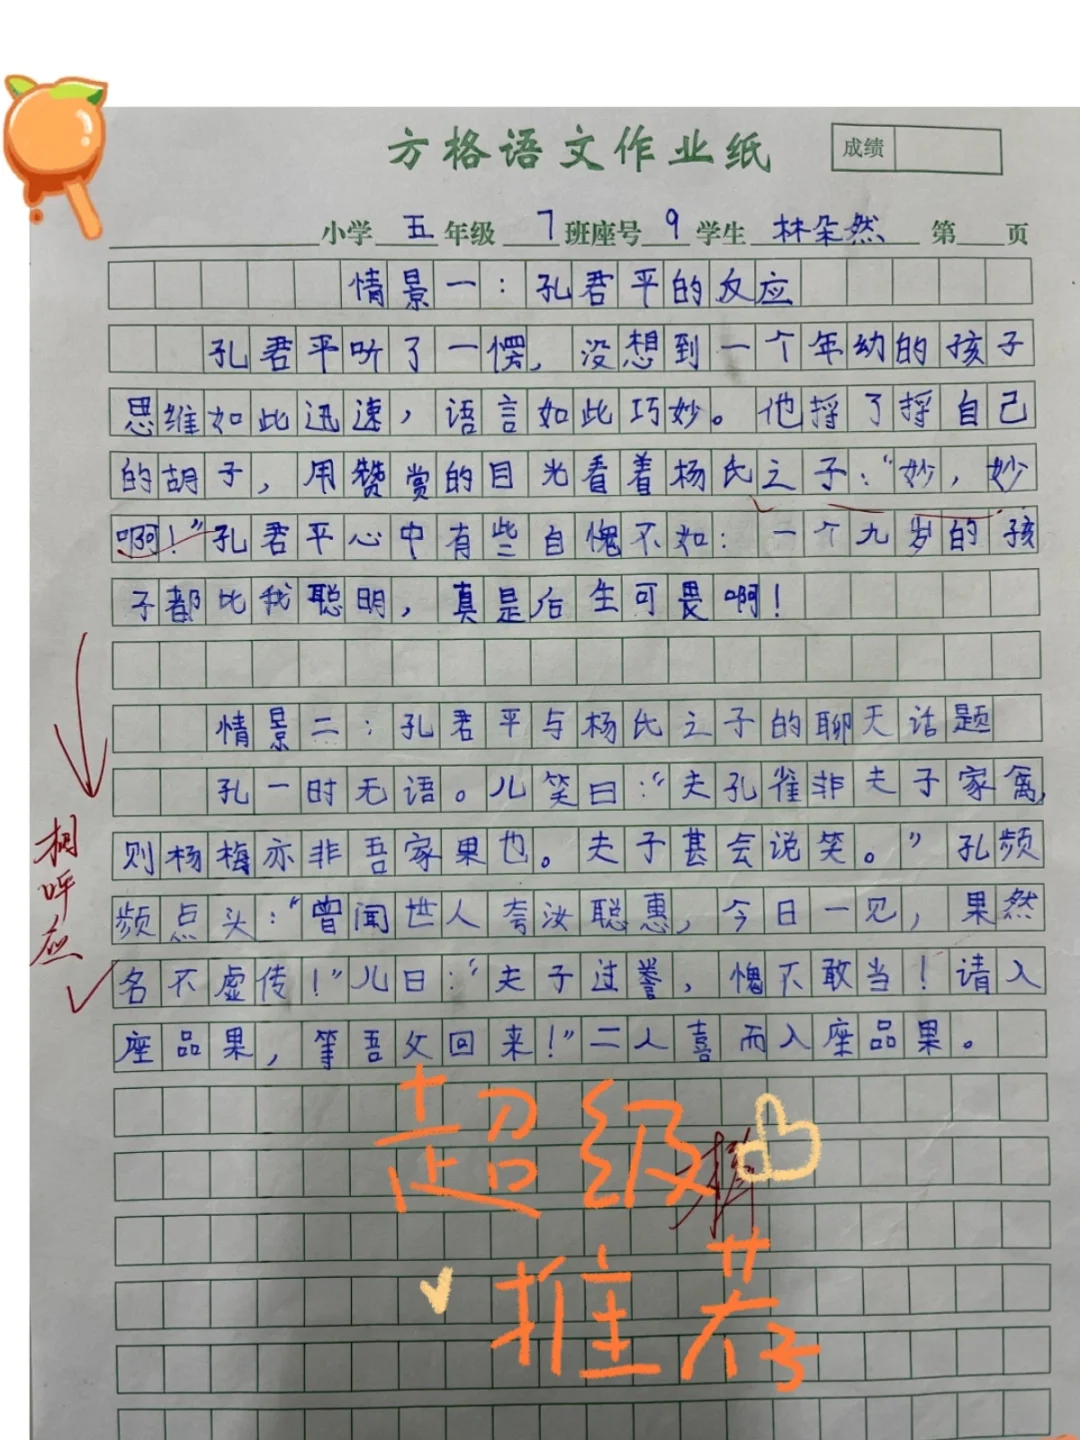 方格语文作业纸
成绩
小学 五 年级 7 班座号 9 学生 林朵然 第 页
情景一：孔君平的反应
孔君平听了一愣，没想到一个年幼的孩子
思维如此迅速，语言如此巧妙。他捋了捋自己
的胡子，用赞赏的目光看着杨氏之子：“妙，妙
啊！”孔君平心中有些自愧不如：一个九岁的孩
子都比我聪明，真是后生可畏啊！
情景二：孔君平与杨氏之子的聊天话题
孔一时无语。儿笑曰：“夫孔雀非夫子家禽，
则杨梅亦非吾家果也。夫子甚会说笑。”孔频
频点头：“曾闻世人夸汝聪惠，今日一见，果然
名不虚传！”儿曰：“夫子过誉，愧不敢当！请入
座品果，等吾父回来！”二人喜而入座品果。
相呼应
超级
棒
推荐